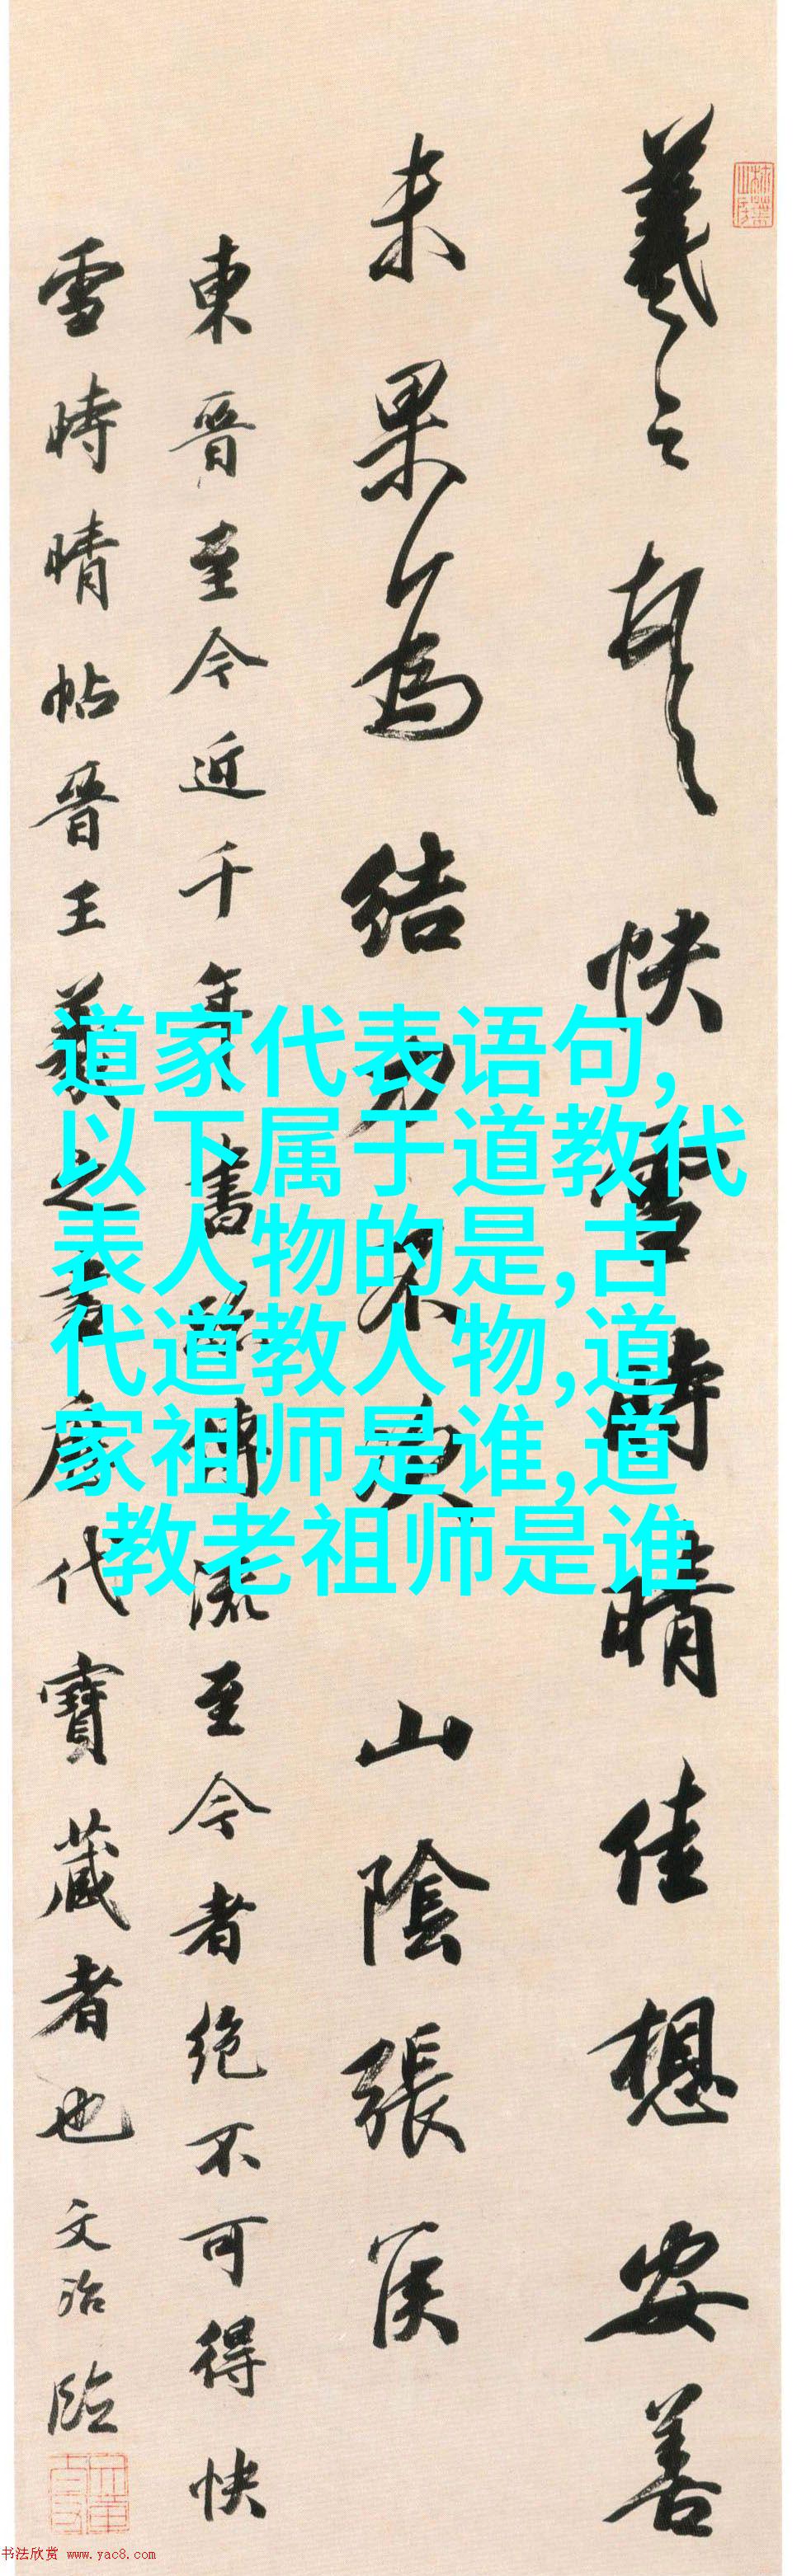 羲之頓首快雪時晴佳想安善
未果為結力不次山陰張侯
東晉至今近千年書跡傳流至今者絕不可得快
雪時晴帖晉王羲之書歷代寶藏者也文治臨
道家代表语句,
以下属于道教代
表人物的是,古
代道教人物,道
家祖师是谁,道
教老祖师是谁
书法欣赏 www.yac8.com